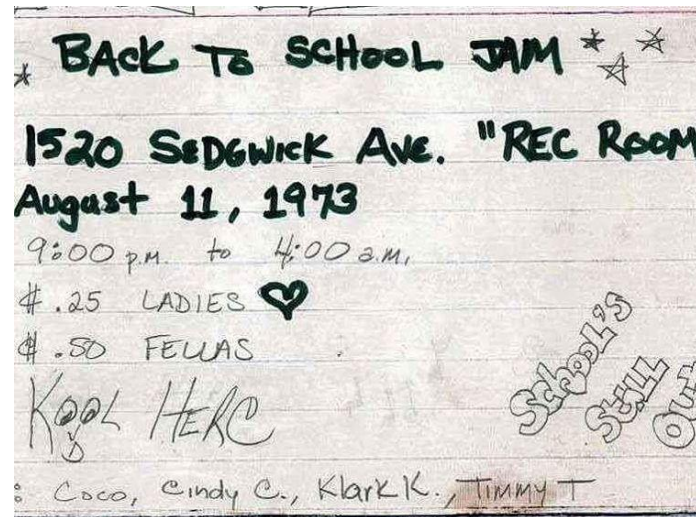 BACK TO SCHOOL JAM
1520 SEDGWICK AVE. "REC ROOM
August 11, 1973
9:00 p.m. to 4:00 a.m.
$.25 LADIES
$.50 FELLAS
KOOL HERC
School's
Still
Out
: Coco, Cindy C., Klark K., Timmy T